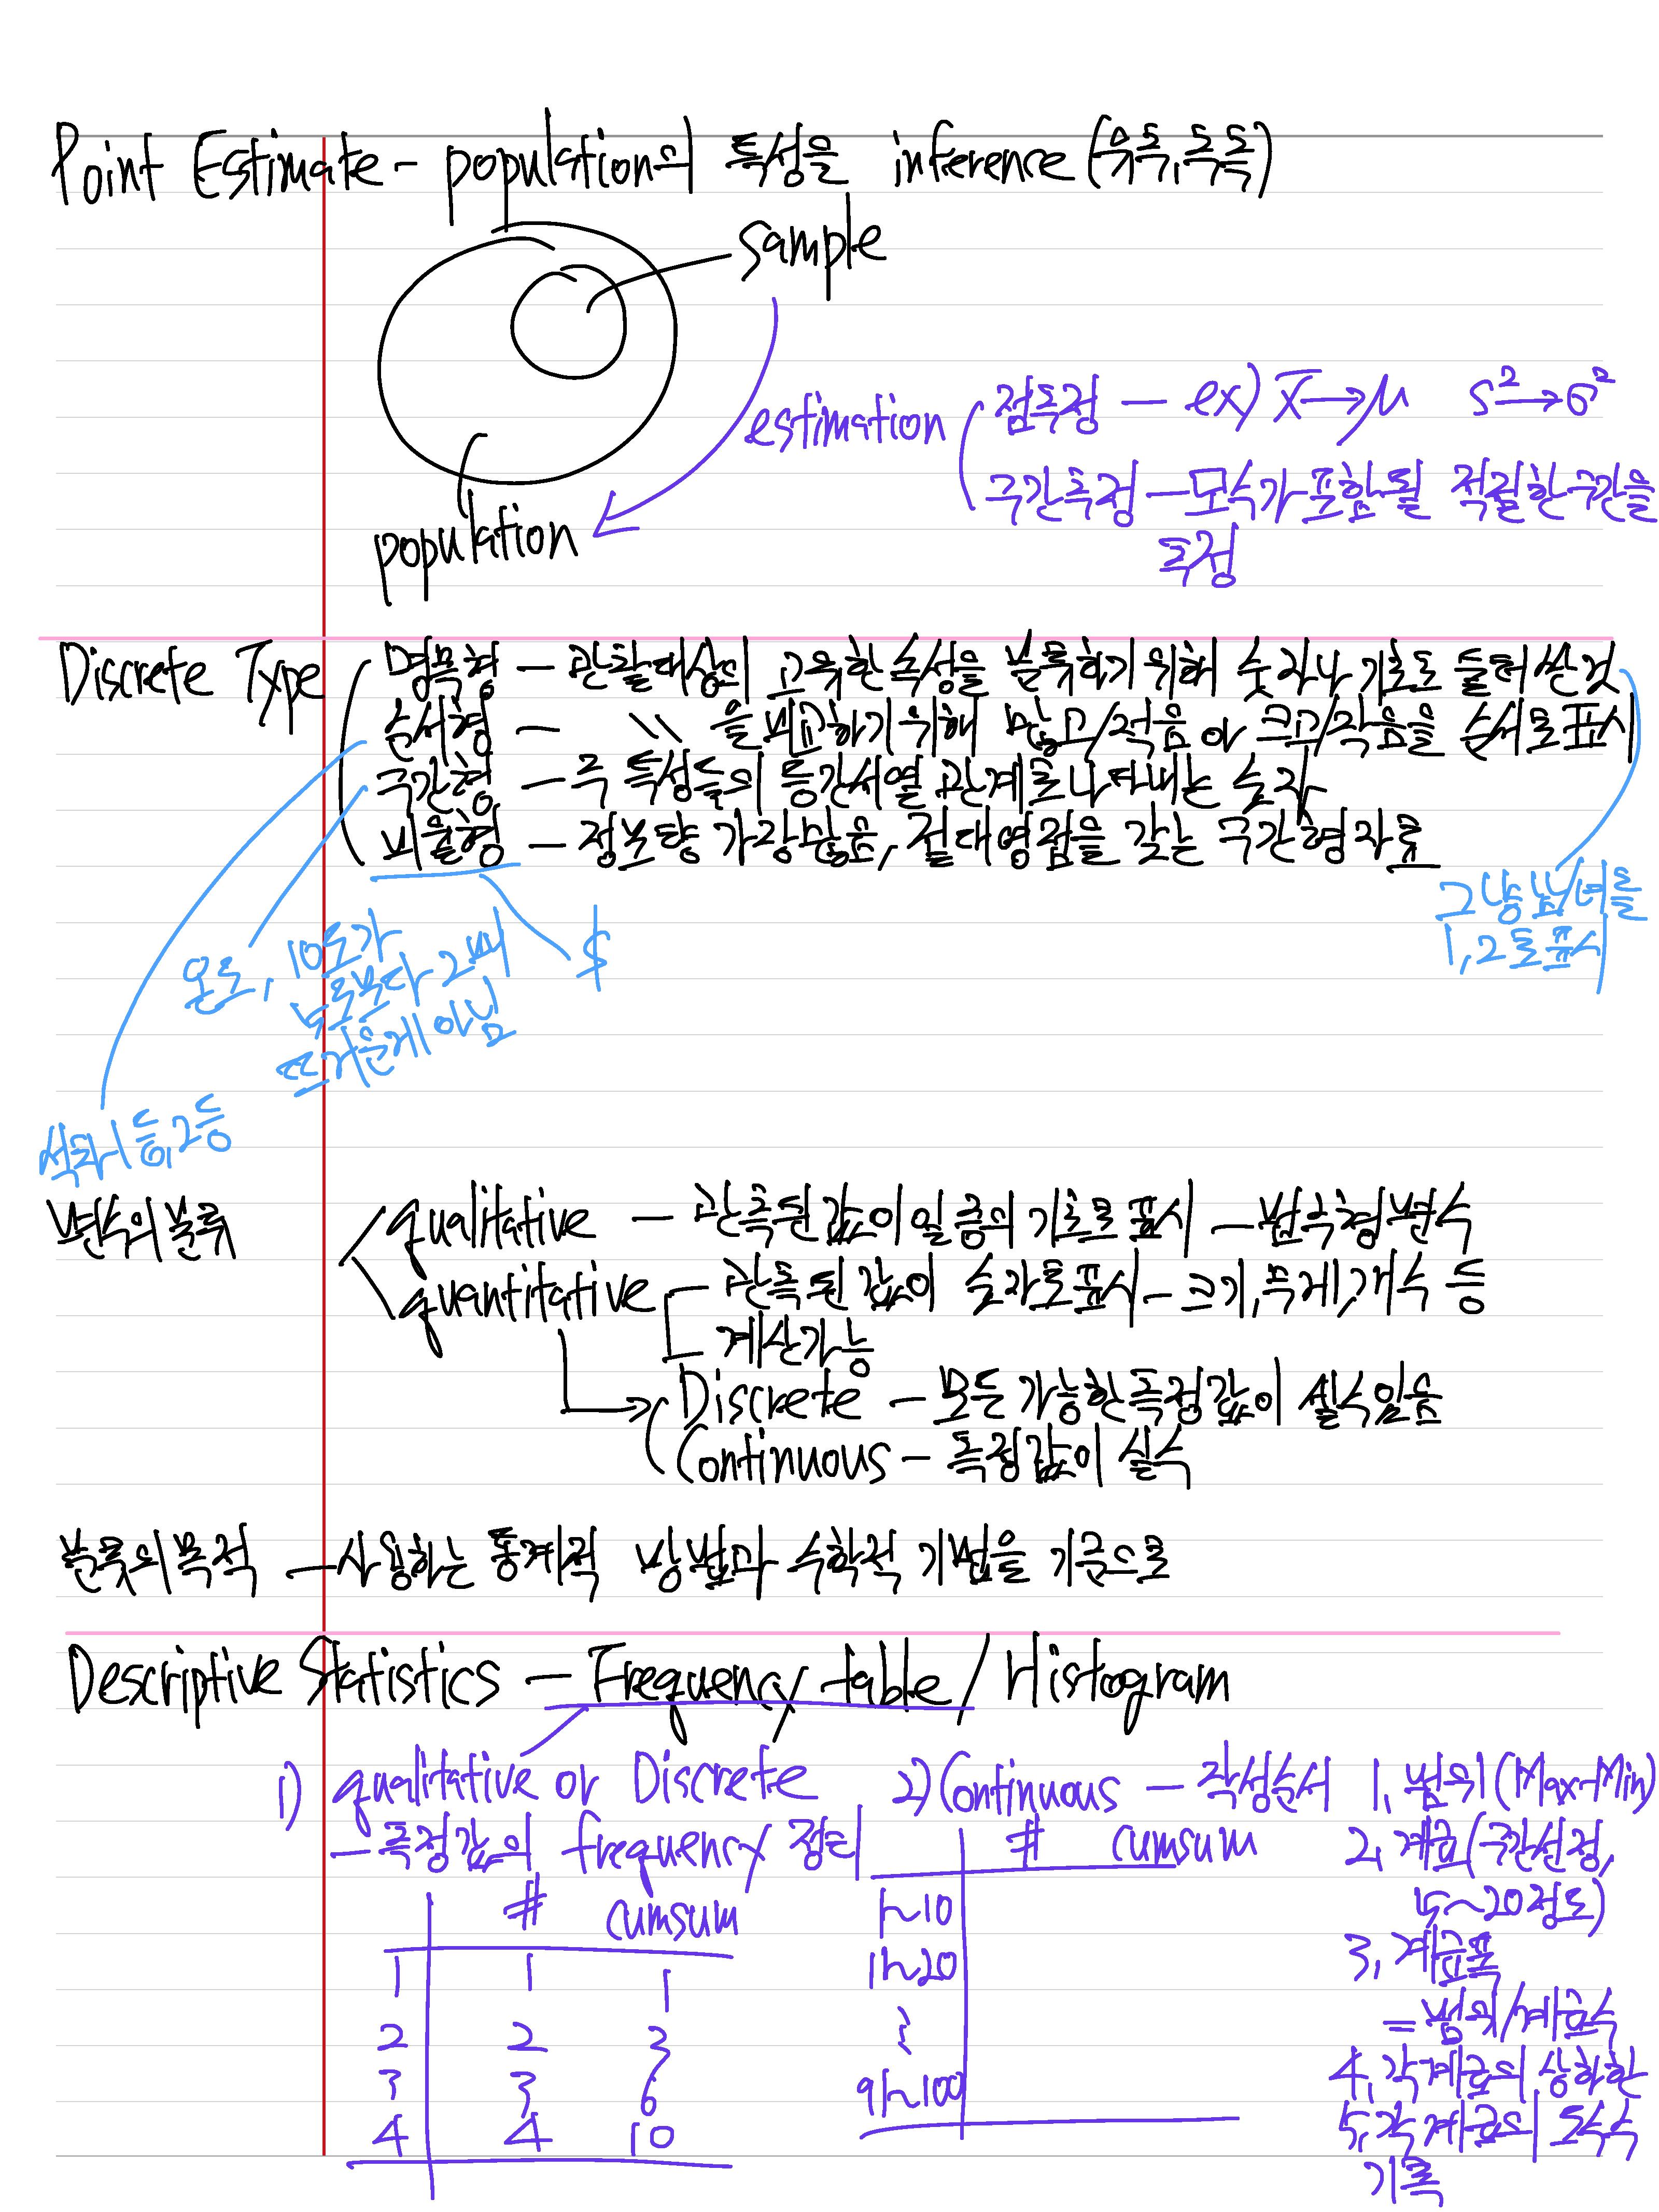 Point Estimate - population의 특성을 inference (유추, 추측)
sample
estimation
점추정 - ex) x̄→μ s²→σ²
구간추정 - 모수가 포함될 적절한 구간을
추정
population
Discrete Type
명목형 - 관찰대상의 고유한 속성을 분류하기 위해 숫자나 기호로 둘러싼 것
순서형 - 〃 을 비교하기 위해 많고/적음 이나 크고/작음을 순서로 표시
구간형 - 두 특성들의 등간서열 관계를 나타내는 숫자
비율형 - 정보량 가장 많음, 절대영점을 갖는 구간형 자료
그냥 남/녀를
1, 2로 표시
온도, 10도가
5도보다 2배
뜨거운게 아님
$
석차 1등, 2등
변수의 분류
qualitative - 관측된 값이 일종의 기호로 표시 - 범주형 변수
quantitative - 관측된 값이 숫자로 표시 - 크기, 무게, 개수 등
계산가능
Discrete - 모든 가능한 측정값이 셀 수 있음
Continuous - 측정값이 실수
분류의 목적 - 사용하는 통계적 방법과 수학적 기법을 기준으로
Descriptive Statistics - Frequency table / Histogram
1) qualitative or Discrete
- 측정값의 frequency 정리
# cumsum
1 1 1
2 2 3
3 3 6
4 4 10
2) Continuous - 작성순서 1, 범위(Max-Min)
2, 계급(구간선정,
5~20정도)
3, 계급폭
= 범위/계급수
4, 각 계급의 상하한
5, 각 계급의 도수
기록
# cumsum
1~10
11~20
⋮
91~100